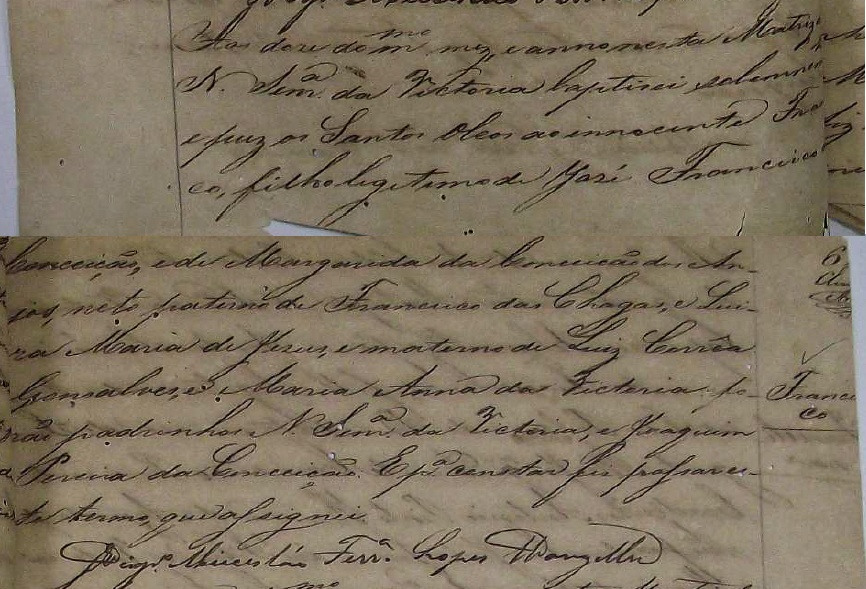 Aos doze do mmo mez, e anno nesta Matriz
N. Senra da Victoria baptisei solemnem
e puz os Santos Oleos ao innocente Fran
co, filho legitimo de José Francisco
Conceição, e de Margarida da Conceição dos An-
jos, neto paterno de Francisco das Chagas, e Lui-
za Maria de Jesus, e materno de Luiz Corrêa
Gonsalves, e Maria Anna da Victoria, fo-
rão padrinhos N. Senra da Victoria, e Joaquim
Pereira da Conceição. E pa constar fiz passar es-
te termo, que assignei.
Vigro Ferra Lopes
Francis
co